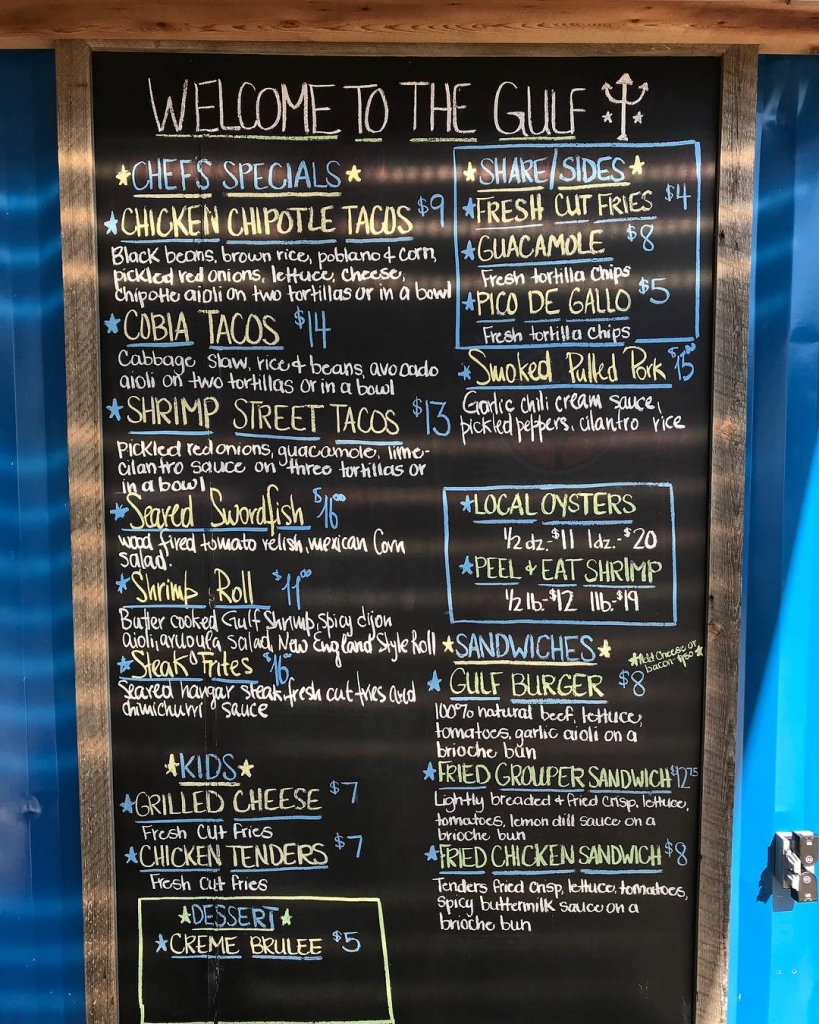 WELCOME TO THE GULF
CHEF'S SPECIALS
CHICKEN CHIPOTLE TACOS $9
Black beans, brown rice, poblano & corn,
pickled red onions, lettuce, cheese,
chipotle aioli on two tortillas or in a bowl
COBIA TACOS $14
Cabbage slaw, rice & beans, avocado
aioli on two tortillas or in a bowl
SHRIMP STREET TACOS $13
Pickled red onions, guacamole, lime-
cilantro sauce on three tortillas or
in a bowl
Seared Swordfish $16.00
wood fired tomato relish, mexican Corn
Salad.
Shrimp Roll
Butter cooked Gulf Shrimp, spicy dijon
aioli, arugula, salad, New England Style Roll
Steak Frites $16
Seared hangar steak, fresh cut fries and
chimichurri sauce
KIDS
GRILLED CHEESE $7
Fresh Cut Fries
CHICKEN TENDERS $7
Fresh Cut Fries
DESSERT
CREME BRULEE $5
SHARE/SIDES
FRESH CUT FRIES $4
GUACAMOLE $8
Fresh tortilla chips
PICO DE GALLO $5
Fresh tortilla chips
Smoked Pulled Pork $15.00
Garlic chili cream sauce,
pickled peppers, cilantro rice
LOCAL OYSTERS
1/2 dz.-$11 1dz.-$20
PEEL & EAT SHRIMP
1/2 lb.-$12 1lb-$19
SANDWICHES
Add Cheese or
bacon-
GULF BURGER $8
100% natural beef, lettuce,
tomatoes, garlic aioli on a
brioche bun
FRIED GROUPER SANDWICH $12.75
Lightly breaded & fried crisp, lettuce,
tomatoes, lemon dill sauce on a
brioche bun
FRIED CHICKEN SANDWICH $8
Tenders fried crisp, lettuce, tomatoes,
spicy buttermilk sauce on a
brioche bun